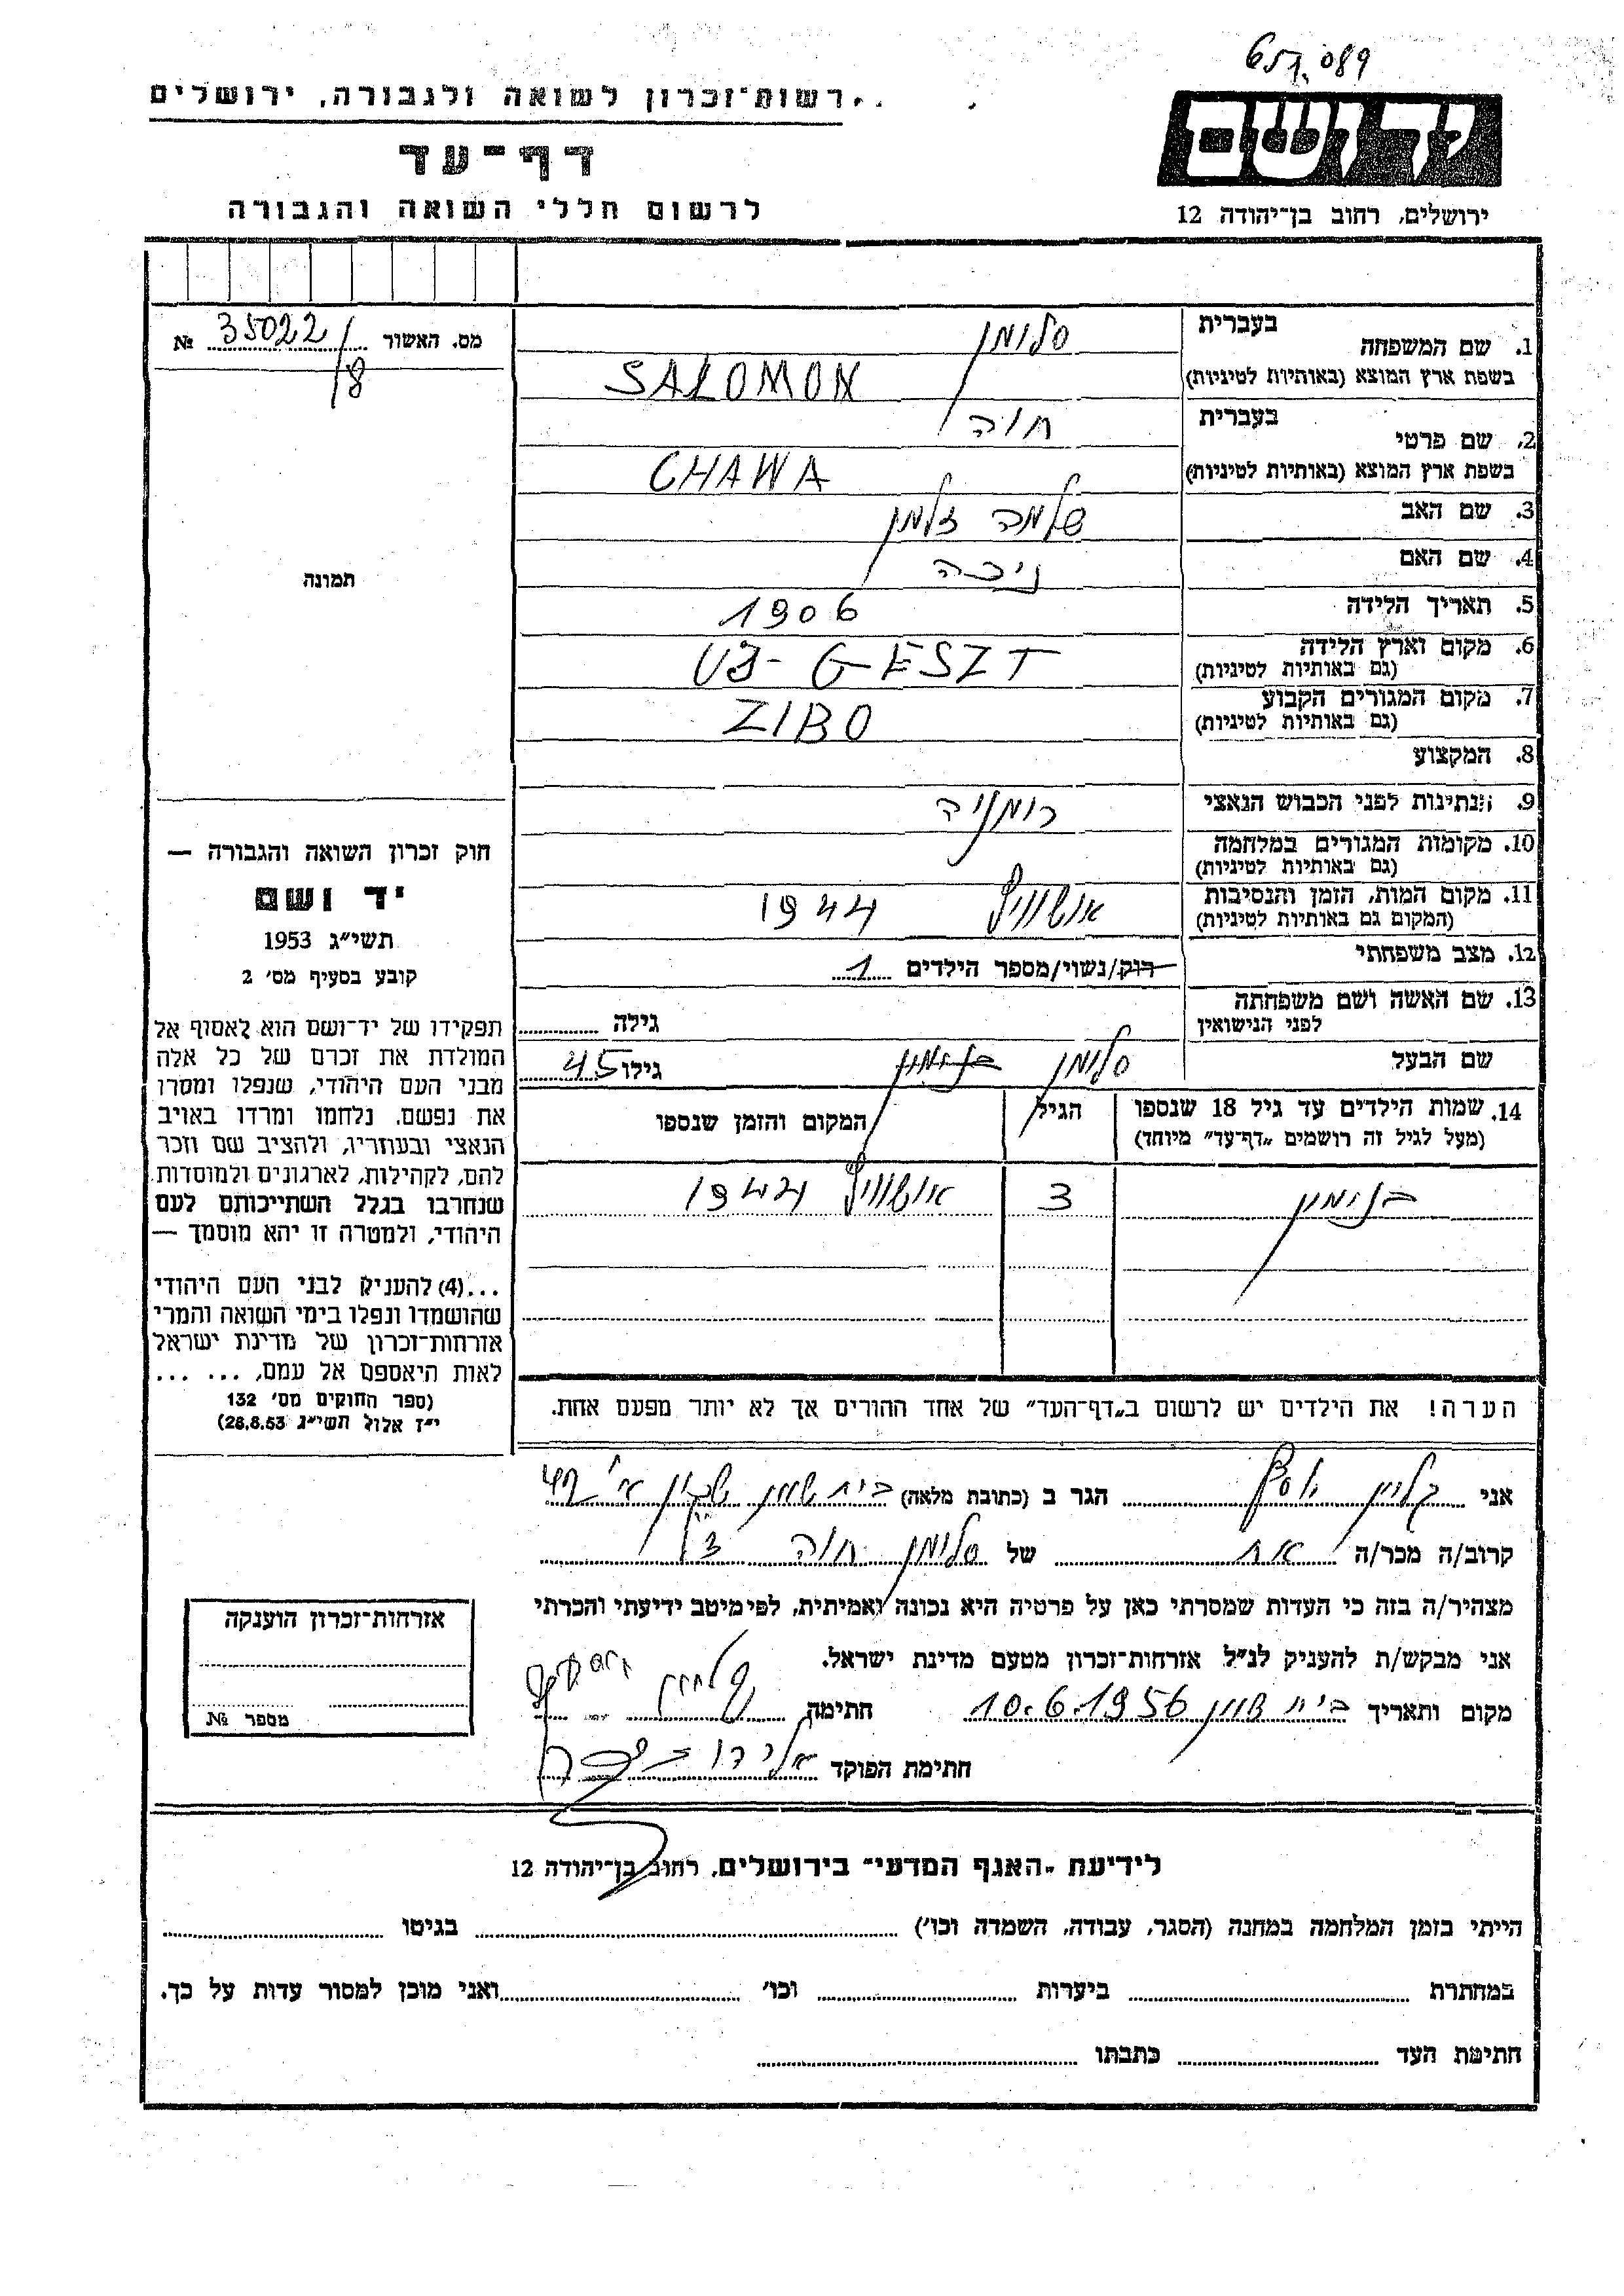 651.089
רשות־זכרון לשואה ולגבורה, ירושלים
יד ושם
דף־עד
לרשום חללי השואה והגבורה
ירושלים, רחוב בן־יהודה 12
מס. האשור 35022/8 №
1. שם המשפחה בעברית סלומון
בשפת ארץ המוצא (באותיות לטיניות) SALOMON
2. שם פרטי בעברית חוה
בשפת ארץ המוצא (באותיות לטיניות) CHAWA
3. שם האב שלמה זלמן
4. שם האם
5. תאריך הלידה 1906
6. מקום וארץ הלידה UJ-GESZT
(גם באותיות לטיניות)
7. מקום המגורים הקבוע ZIBO
(גם באותיות לטיניות)
8. המקצוע
9. הנתינות לפני הכבוש הנאצי רומניה
10. מקומות המגורים במלחמה
(גם באותיות לטיניות)
11. מקום המות, הזמן והנסיבות אושוויץ 1944
(המקום גם באותיות לטיניות)
12. מצב משפחתי רוק/נשוי/מספר הילדים 1
13. שם האשה ושם משפחתה
לפני הנישואין גילה
שם הבעל סלומון גילו 45
14. שמות הילדים עד גיל 18 שנספו הגיל המקום והזמן שנספו
(מעל לגיל זה רושמים „דף־עד״ מיוחד)
בנימין 3 אושוויץ 1944
הערה! את הילדים יש לרשום ב„דף־העד״ של אחד ההורים אך לא יותר מפעם אחת.
תמונה
חוק זכרון השואה והגבורה —
יד ושם
תשי״ג 1953
קובע בסעיף מס׳ 2
תפקידו של יד־ושם הוא לאסוף אל
המולדת את זכרם של כל אלה
מבני העם היהודי, שנפלו ומסרו
את נפשם, נלחמו ומרדו באויב
הנאצי ובעוזריו, ולהציב שם וזכר
להם, לקהילות, לארגונים ולמוסדות
שנחרבו בגלל השתייכותם לעם
היהודי, ולמטרה זו יהא מוסמך —
...(4) להעניק לבני העם היהודי
שהושמדו ונפלו בימי השואה והמרי
אזרחות־זכרון של מדינת ישראל
לאות היאספם אל עמם, ... ...
(ספר החוקים מס׳ 132
י״ז אלול תשי״ג 28.8.53)
אני יוסף הגר ב (כתובת מלאה) בית שאן שכון א׳ 42
קרוב/ה מכר/ה אח של סלומון חוה ז״ל
מצהיר/ה בזה כי העדות שמסרתי כאן על פרטיה היא נכונה ואמיתית, לפי מיטב ידיעתי והכרתי
אני מבקש/ת להעניק לנ״ל אזרחות־זכרון מטעם מדינת ישראל.
מקום ותאריך בית שאן 10.6.1956 חתימה
חתימת הפוקד
אזרחות־זכרון הוענקה
מספר №
לידיעת „האגף המדעי״ בירושלים, רחוב בן־יהודה 12
הייתי בזמן המלחמה במחנה (הסגר, עבודה, השמדה וכו׳) בגיטו
במחתרת ביערות וכו׳ ואני מוכן למסור עדות על כך.
חתימת העד כתבתו